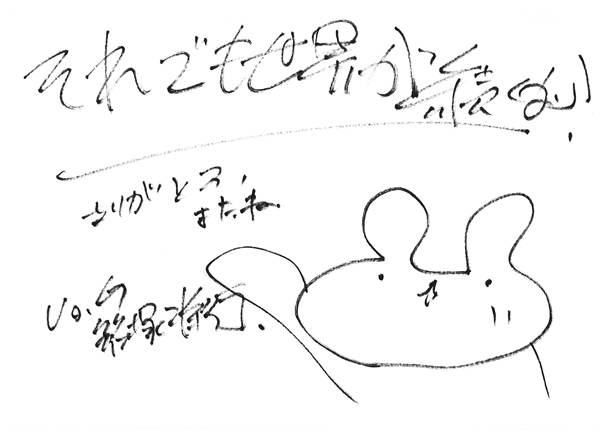 それでも世界が続くなら
ありがとう、
またね
Vo.G
篠塚将行